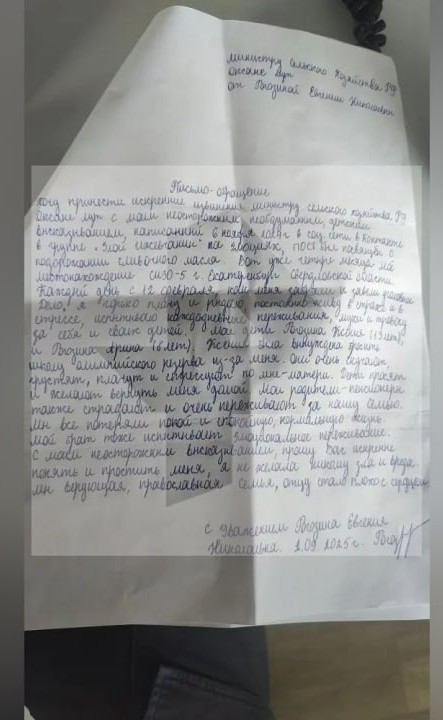 Министру Сельского Хозяйства РФ
Оксане Лут
от Рогозиной Евгении Николаевны
Письмо-обращение
Хочу принести искренние извинения министру сельского хозяйства РФ
Оксане Лут с моим неосторожным, необдуманным, детским
высказыванием, написанным 6 ноября в соц. сети в Контакте
в группе "Злой пост был наверху о
подорожании сливочного масла. Вот уже четыре месяца, моё
местонахождение СИЗО-5 г. Екатеринбург Свердловской области
Каждый день с 12 февраля, как меня задержали и завели уголовное
дело, я горько плачу и рыдаю, постоянно живу в страхе и в
стрессе, испытываю каждодневные переживания, муки и тревогу
за себя и своих детей. Мои дети Рогозина Ксения (13 лет),
и Рогозина Арина (6 лет). Ксения была вынуждена бросить
школу олимпийского резерва из-за меня. Они очень скучают
грустят, плачут и стрессуют по мне-матери. Дети просят
и желают вернуть меня домой. Мои родители-пенсионеры
также страдают и очень переживают за нашу семью.
Мы все потеряли покой и спокойную, нормальную жизнь.
Мой брат тоже испытывает эмоциональное переживание.
С моим неосторожным высказыванием, прошу Вас искренне
понять и простить меня, я не желала никому зла и вреда.
Мы верующая, православная семья, отцу стало плохо с сердцем
с Уважением Рогозина Евгения
Николаевна. 2025 г.